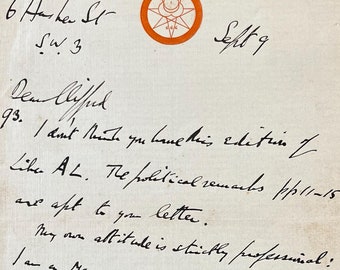 6 Hasker St
S.W. 3
Sept 9
Dear Clifford
93.
I don't think you have this edition of
Liber AL. The political remarks pp 11-15
are apt to your letter.
My own attitude is strictly professional:
I am a